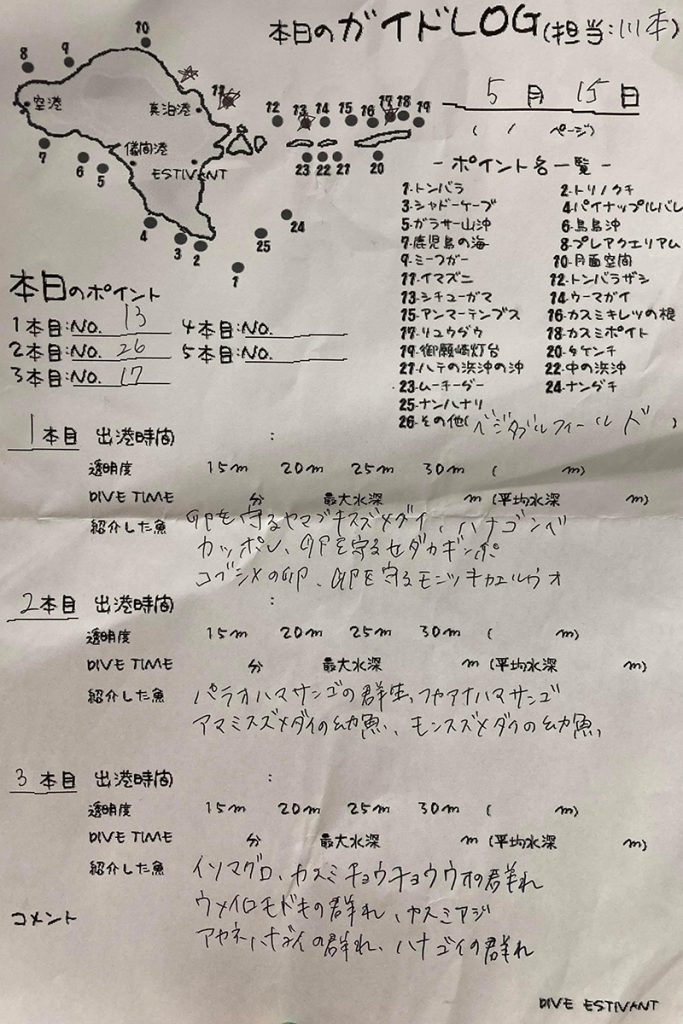 本日のガイドLOG(担当:川本)
5月15日
( / ページ)
8 9 10 11
空港
真泊港
儀間港
ESTIVANT
7 6 5 4 3 2 1 25 24
12 13 14 15 16 17 18 19
23 22 21 20
-ポイント名一覧-
1.トンバラ 2.トリノクチ
3.シャドーケーブ 4.パイナップルバレ
5.ガラサー山沖 6.島島沖
7.鹿児島の海 8.プレアクエリアム
9.ミーフガー 10.月面空間
11.イマズニ 12.トンバラザシ
13.シチューガマ 14.ウーマガイ
15.アンマーテンプス 16.カスミキレツの根
17.リュウダウ 18.カスミポイト
19.御願崎灯台 20.タケンチ
21.ハテの浜沖の沖 22.中の浜沖
23.ムーチーダー 24.ナンダキ
25.ナンハナリ
26.その他(ベジタブルフィールド)
本日のポイント
1本目:NO. 13 4本目:NO.
2本目:NO. 26 5本目:NO.
3本目:NO. 17
1本目 出港時間 :
透明度 15m 20m 25m 30m ( m)
DIVE TIME 分 最大水深 m (平均水深 m)
紹介した魚 卵を守るヤマブキスズメダイ、ハナゴンベ
カッポレ、卵を守るセダカギンポ
コブシメの卵、卵を守るモンツキカエルウオ
2本目 出港時間 :
透明度 15m 20m 25m 30m ( m)
DIVE TIME 分 最大水深 m (平均水深 m)
紹介した魚 パラオハマサンゴの群生、フカアナハマサンゴ
アマミスズメダイの幼魚、モンスズメダイの幼魚、
3本目 出港時間 :
透明度 15m 20m 25m 30m ( m)
DIVE TIME 分 最大水深 m (平均水深 m)
紹介した魚 イソマグロ、カスミチョウチョウウオの群れ
ウメイロモドキの群れ、カスミアジ
コメント
アカネハナゴイの群れ、ハナゴイの群れ
DIVE ESTIVANT